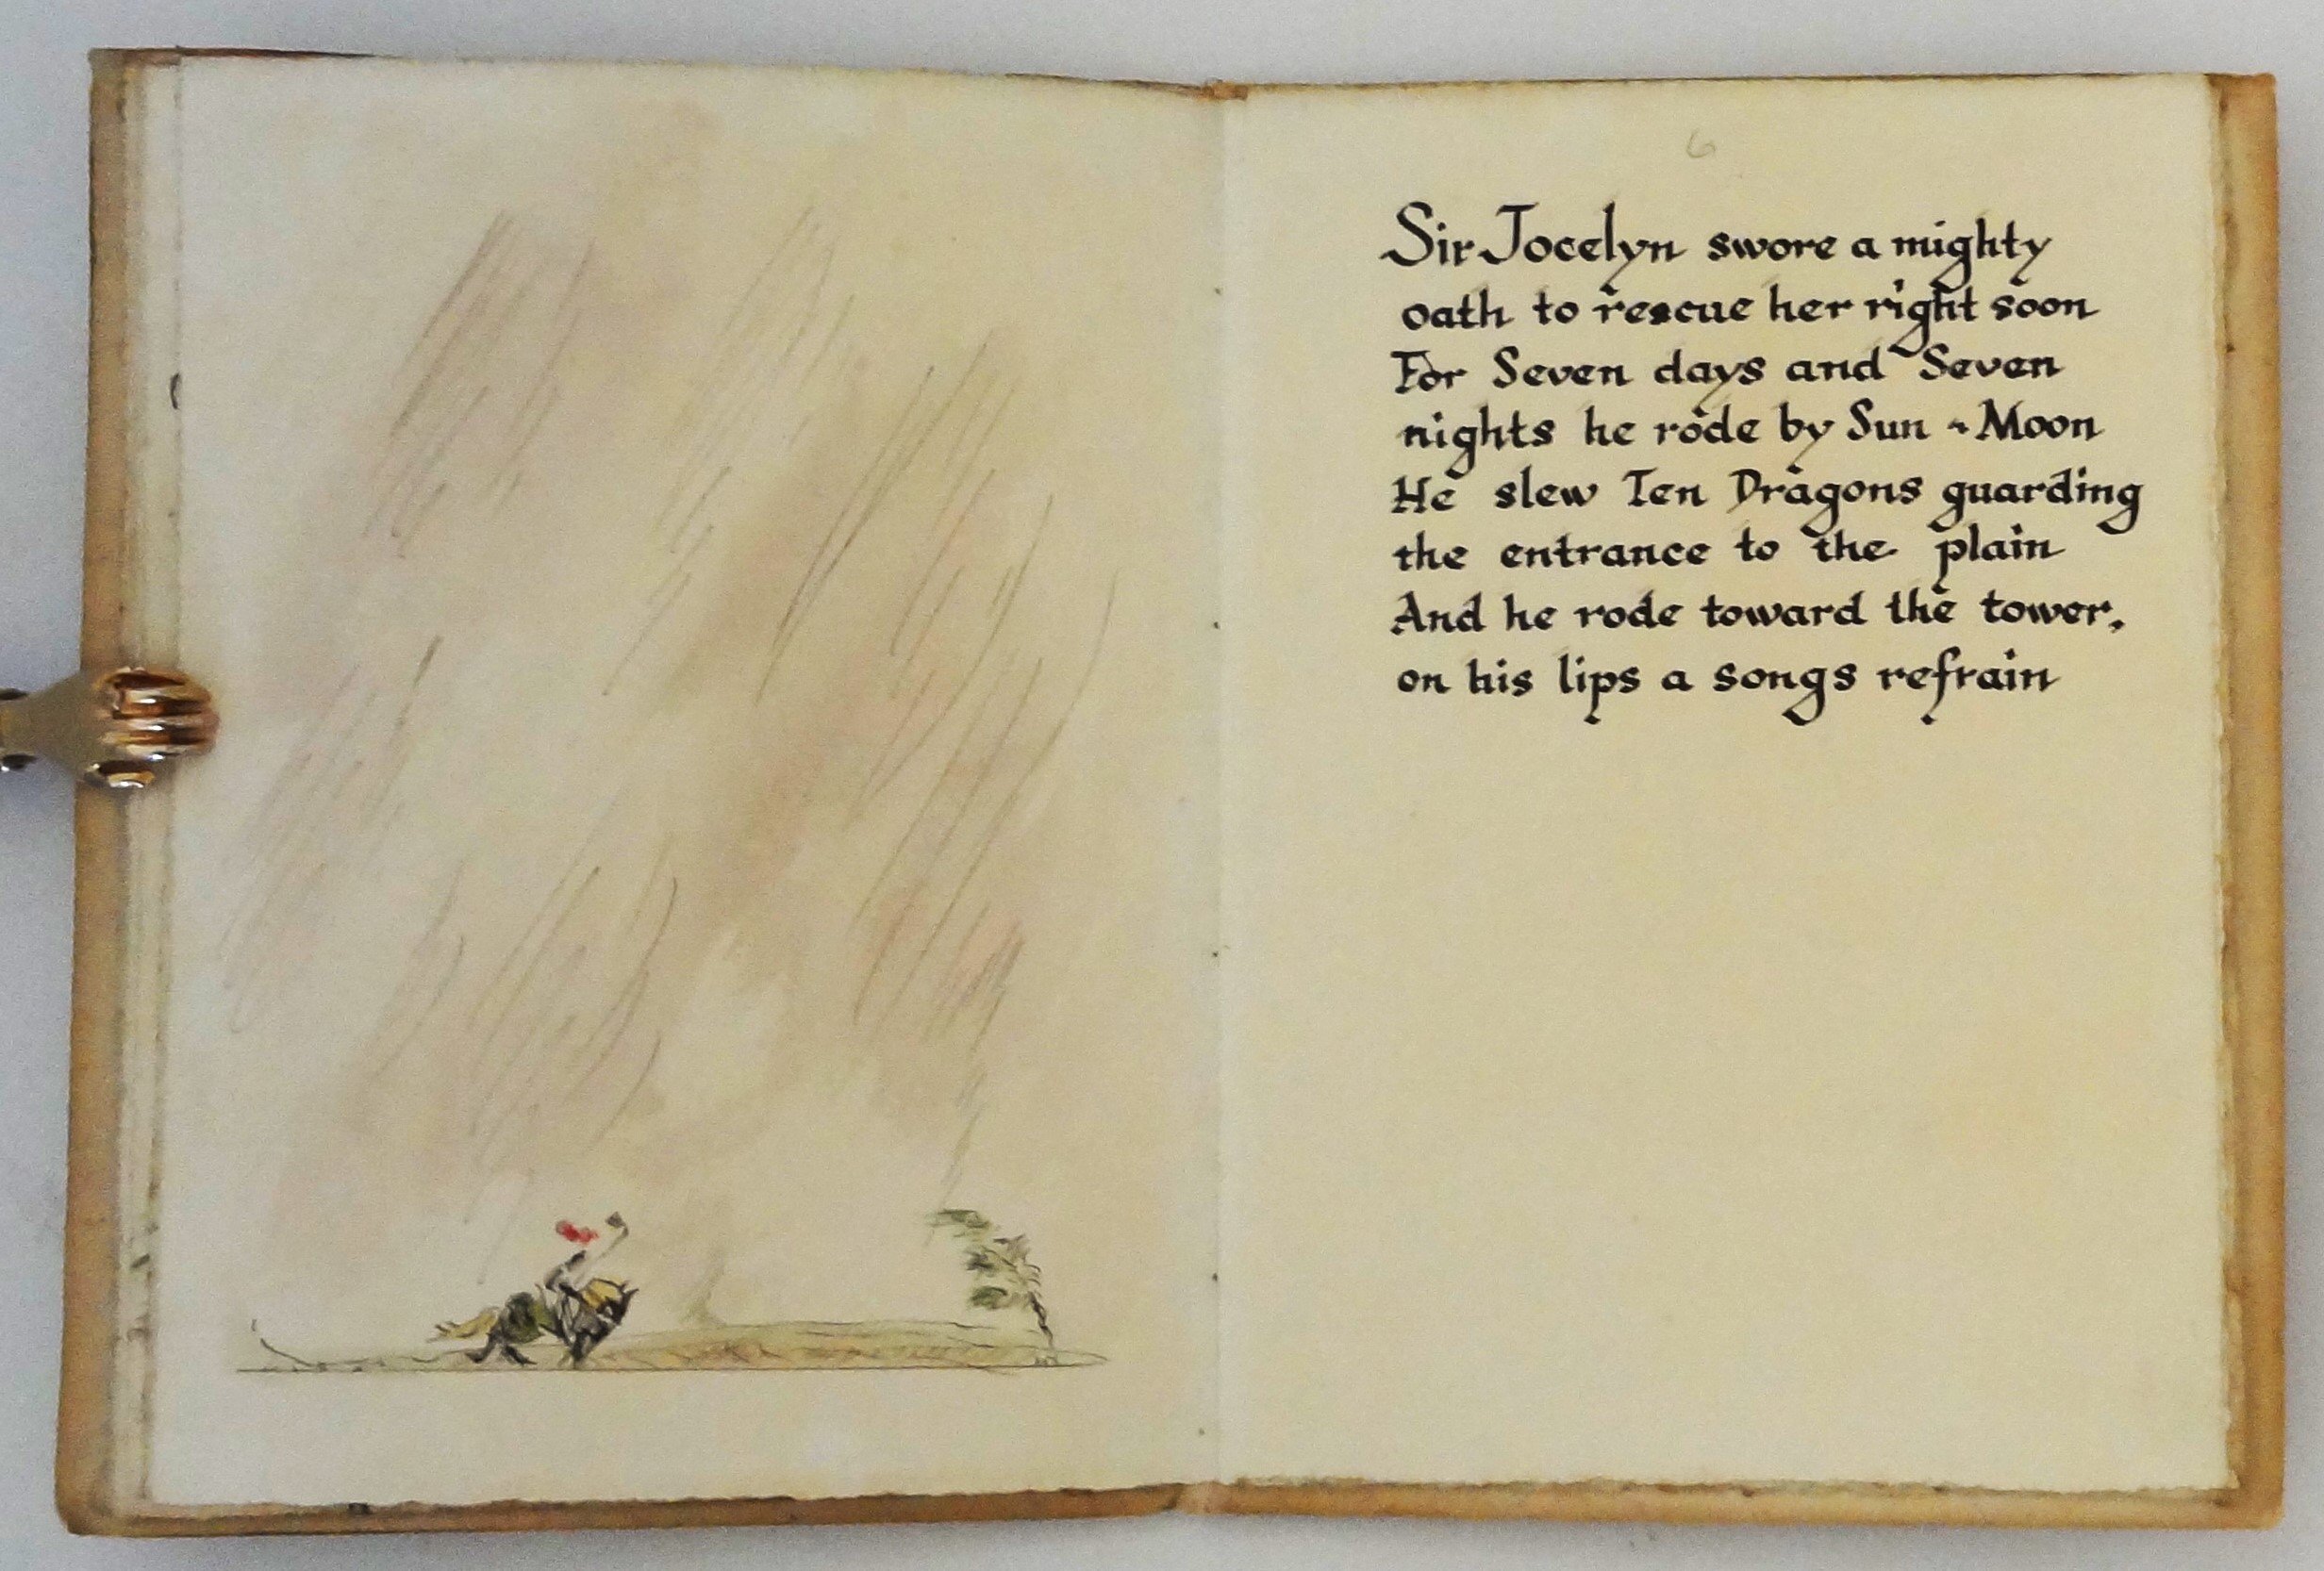 6
Sir Jocelyn swore a mighty
oath to rescue her right soon
For Seven days and Seven
nights he rode by Sun ~ Moon
He slew Ten Dragons guarding
the entrance to the plain
And he rode toward the tower,
on his lips a songs refrain